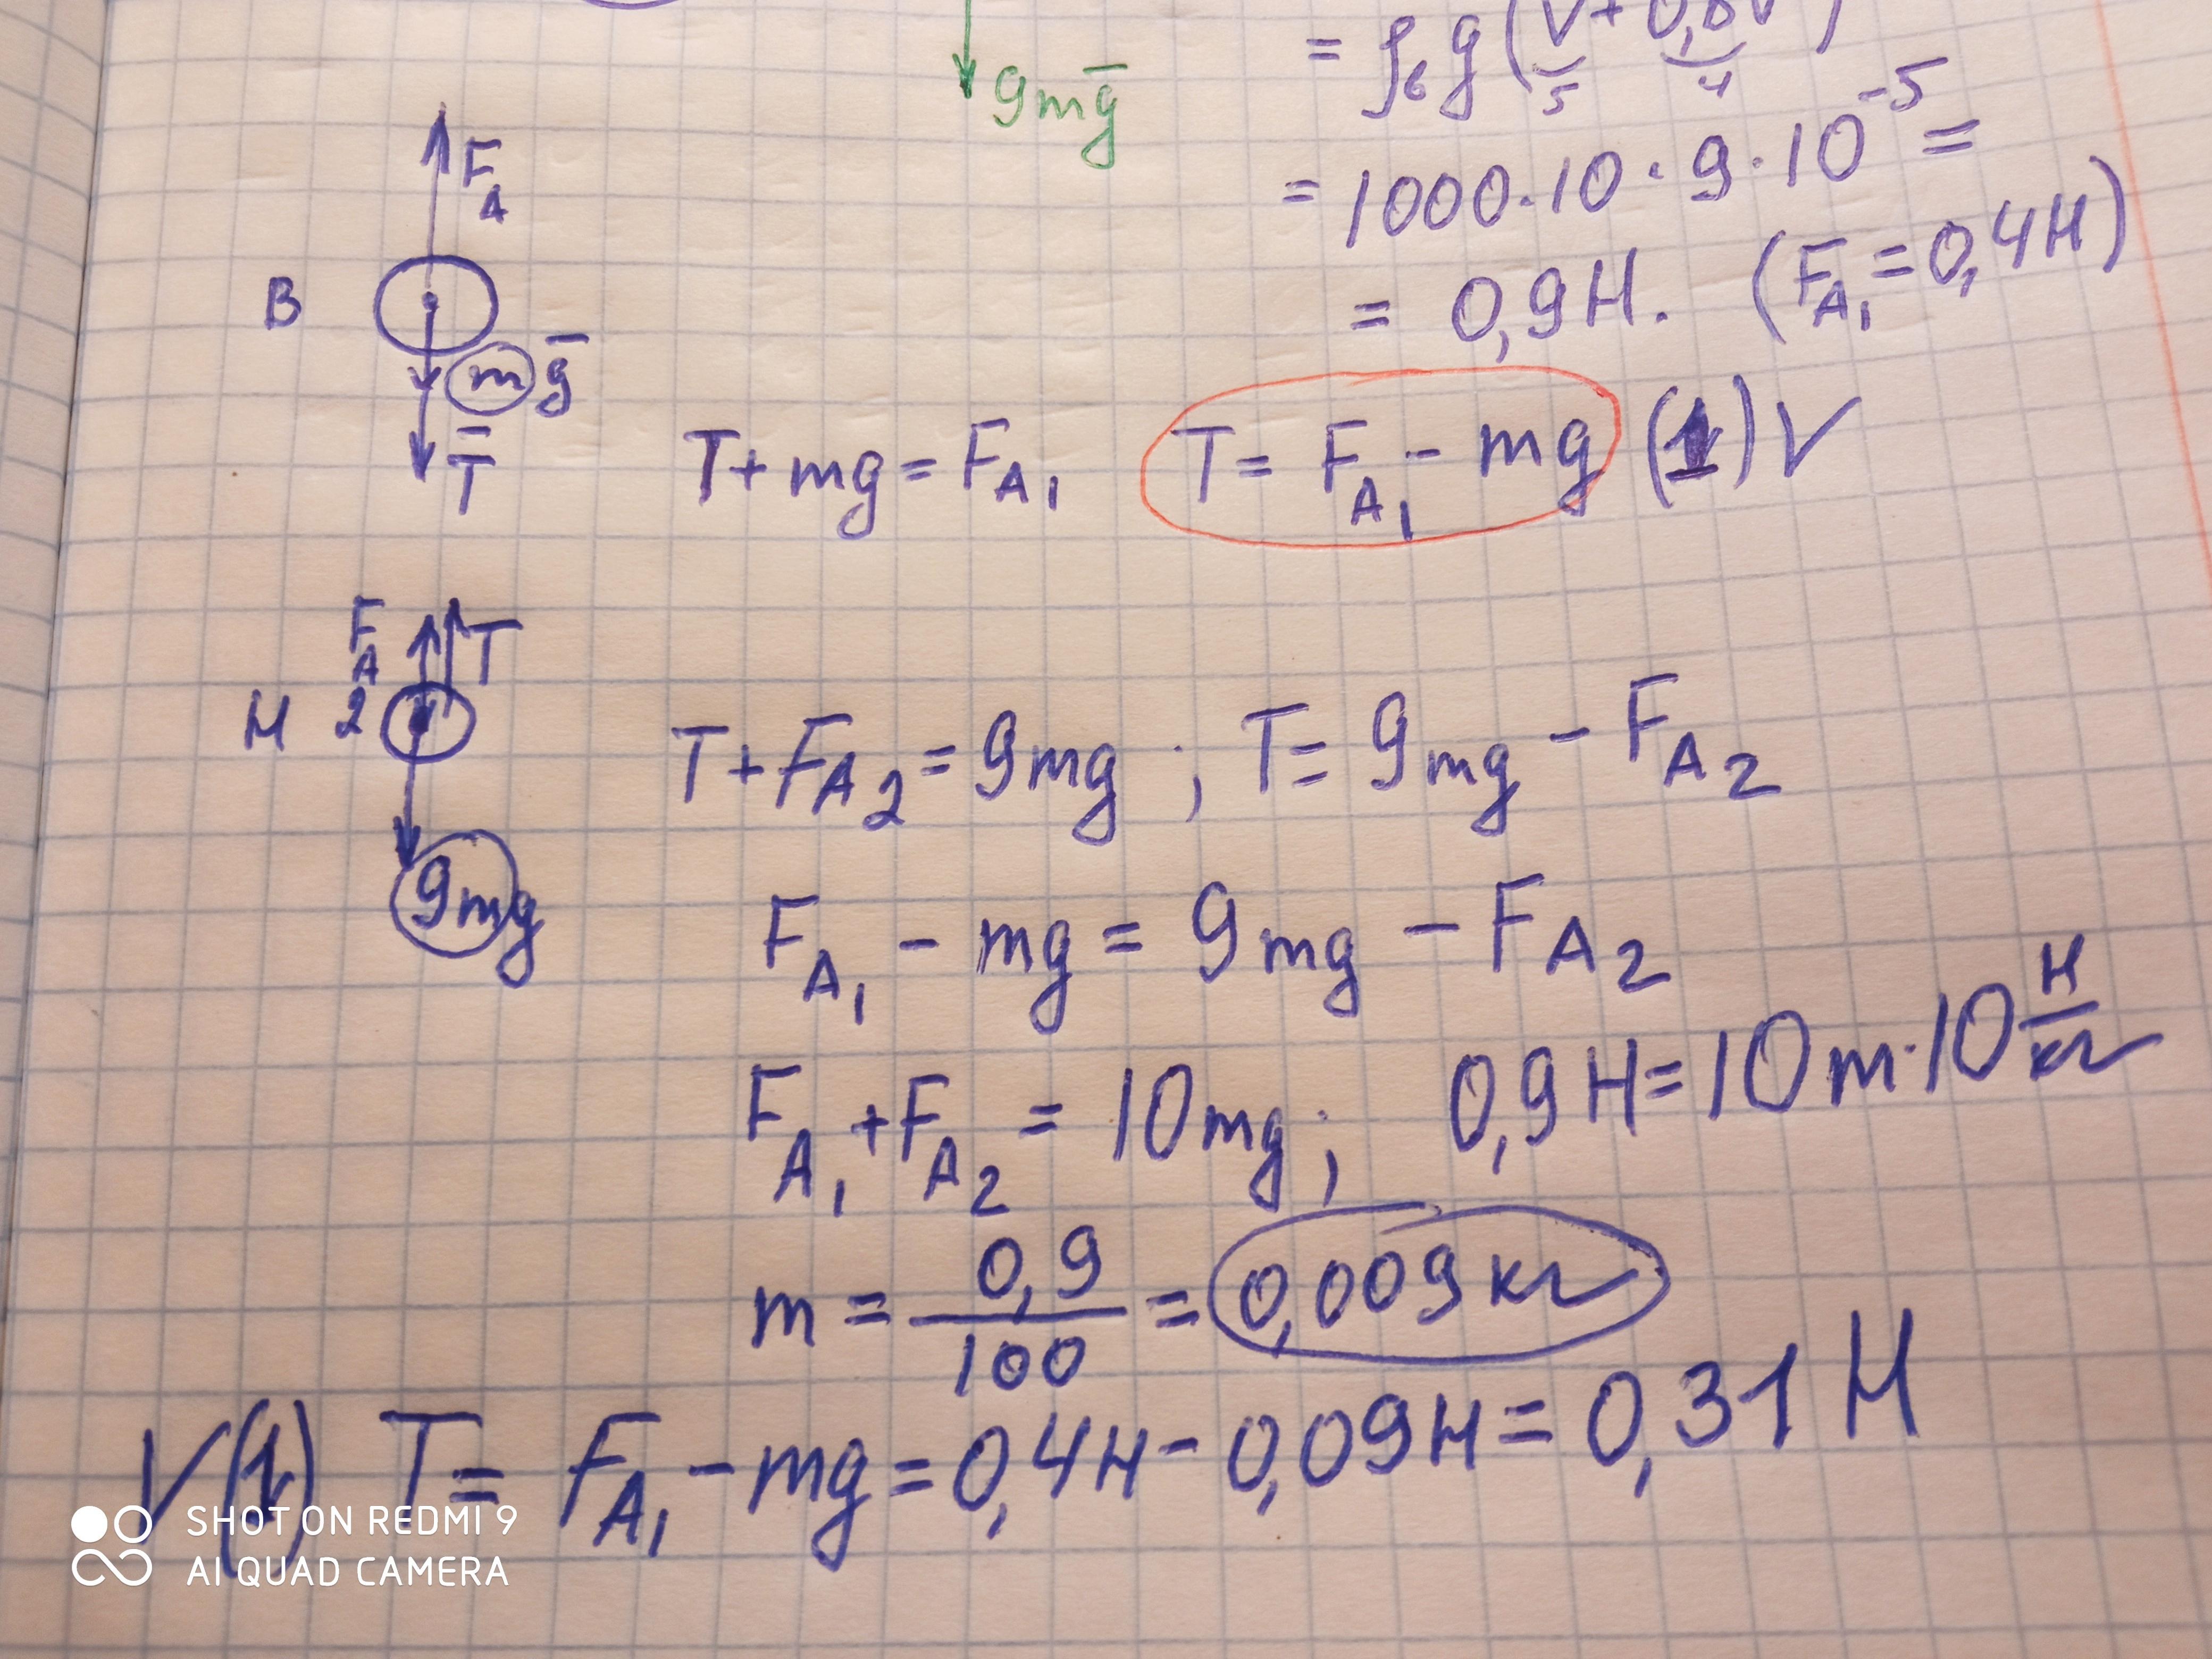 = ρв g (V + 0,8V)
5 4
9mg̅
= 1000·10·9·10⁻⁵ =
= 0,9Н. (F_A₁ = 0,4Н)
F_A
В
mg̅
T̅
T + mg = F_A₁ T = F_A₁ - mg (1) V
F_A2 T
Н
T + F_A2 = 9mg ; T = 9mg - F_A2
9mg
F_A₁ - mg = 9mg - F_A2
F_A₁ + F_A2 = 10mg ; 0,9Н = 10m·10 Н/кг
m = 0,9/100 = 0,009кг
V(1) T = F_A₁ - mg = 0,4Н - 0,09Н = 0,31Н
SHOT ON REDMI 9
AI QUAD CAMERA